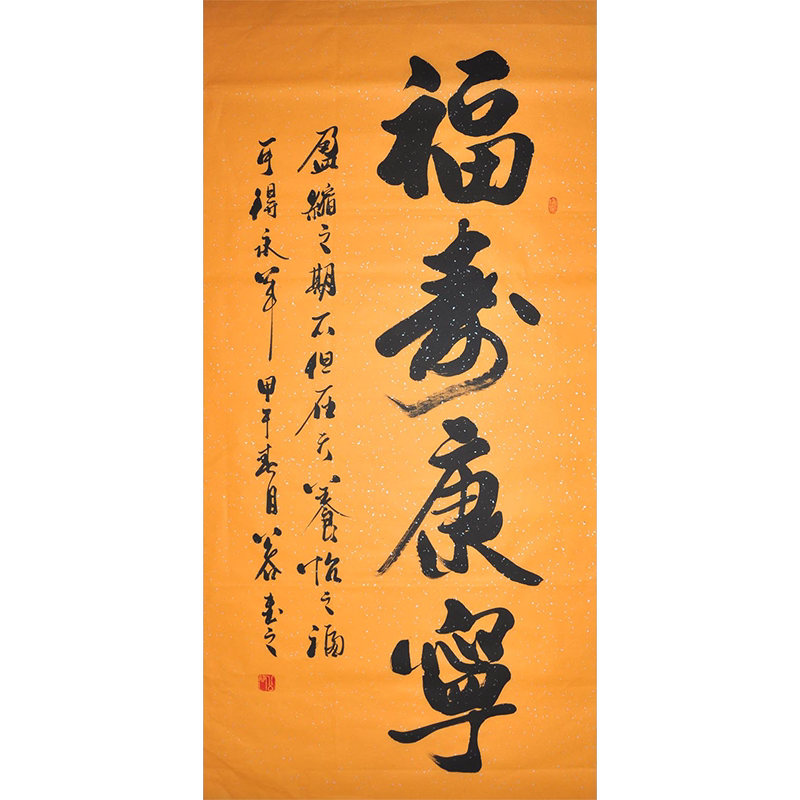 福寿康寧
盈縮之期不但在天養怡之福
可得永年甲午春月善書之